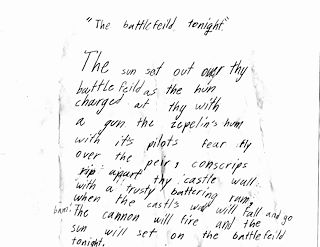 "The battlefeild tonight."
The sun set out over thy
battlefeild as the hun
charged at thy with
a gun the zepelin's hum
with it's pilots fear fly
over the peir, conscrips
rip apart thy castle wall.
with a trusty battering ram,
when the castl's wall will fall and go
bam. The cannon will fire and the
sun will set on the battlefeild
tonight.